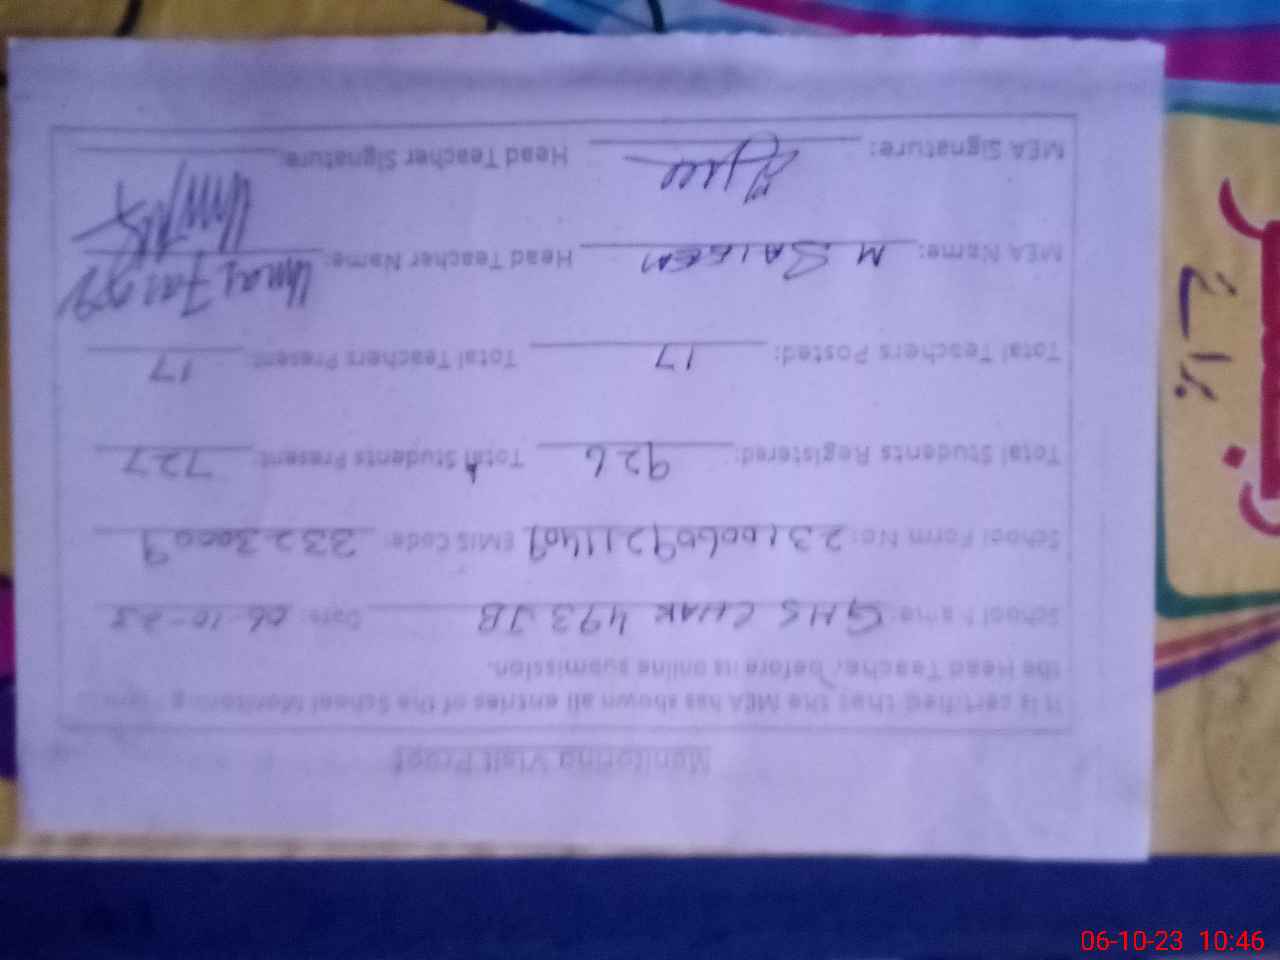 Monitoring Visit Proof
It is certified that the MEA has shown all entries of the School Monitoring
the Head Teacher before its online submission.
School Name: GHS CHAK 493 JB Date: 06-10-23
School Form No: 23100609211409 EMIS Code: 33230009
Total Students Registered: 926 Total Students Present: 727
Total Teachers Posted: 17 Total Teachers Present: 17
MEA Name: M SALEEM Head Teacher Name: Umar
MEA Signature: Head Teacher Signature:
06-10-23 10:46